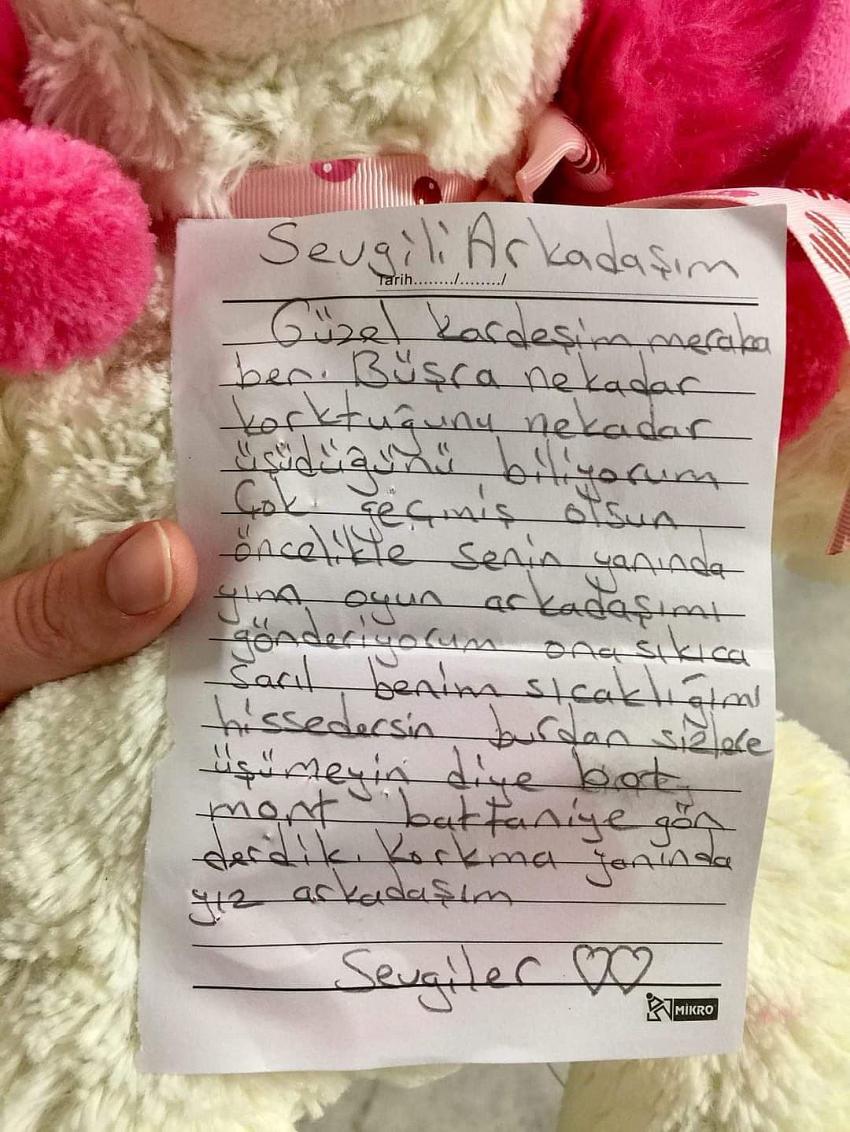 Sevgili Arkadaşım
Tarih......../......../
Güzel kardeşim meraba
ben. Büşra nekadar
korktuğunu nekadar
üşüdüğünü biliyorum
Çok geçmiş olsun
öncelikle senin yanında
yım oyun arkadaşımı
gönderiyorum ona sıkıca
sarıl benim sıcaklığımı
hissedersin burdan sizlere
üşümeyin diye bot,
mont battaniye gön
derdik. Korkma yanında
yız arkadaşım
Sevgiler ♡♡
MİKRO